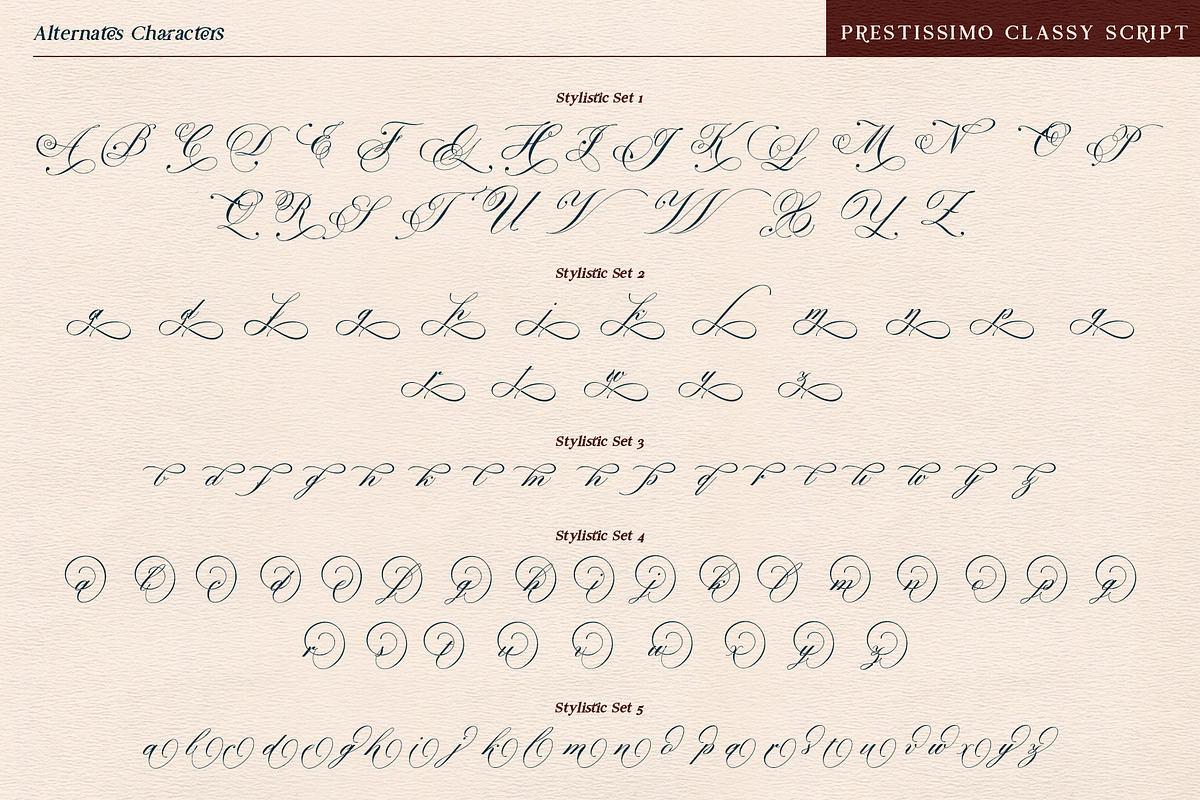 Alternates Characters
PRESTISSIMO CLASSY SCRIPT
Stylistic Set 1
A B C D E F G H I J K L M N O P
Q R S T U V W X Y Z
Stylistic Set 2
a d f g h j k l m n p q
r t w y z
Stylistic Set 3
b d f g h k l m n p q r t u w y z
Stylistic Set 4
a b c d e f g h i j k l m n o p q
r s t u v w x y z
Stylistic Set 5
a b c d e g h i j k l m n o p q r s t u v w x y z